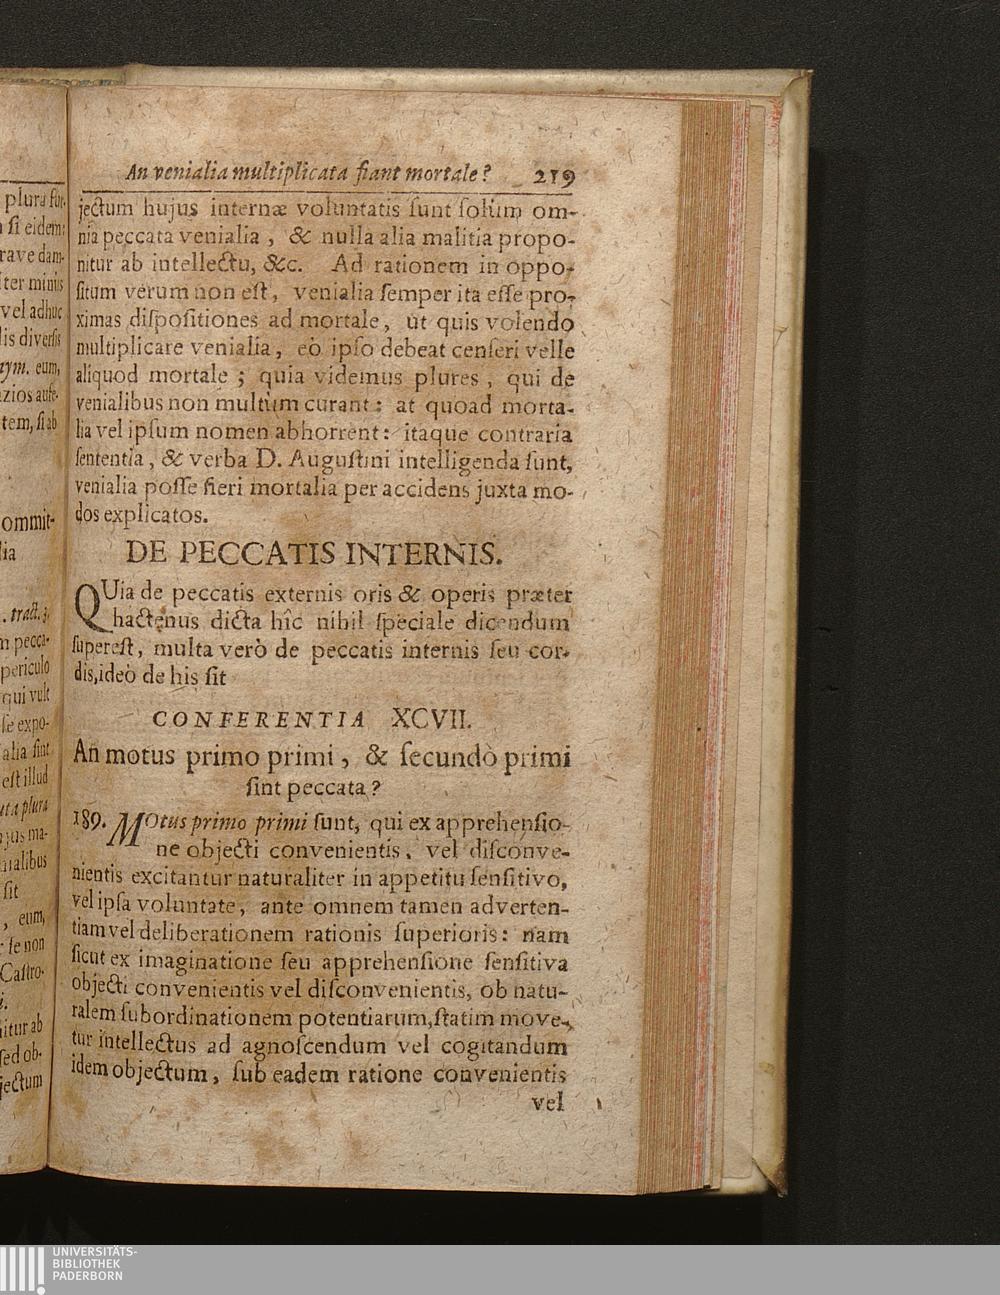 An venialia multiplicata fiant mortale? 219
jectum hujus internæ voluntatis ſunt ſolùm om-
nia peccata venialia, & nulla alia malitia propo-
nitur ab intellectu, &c. Ad rationem in oppo-
ſitum verum non eſt, venialia ſemper ita eſſe pro-
ximas diſpoſitiones ad mortale, ut quis volendo
multiplicare venialia, eò ipſo debeat cenſeri velle
aliquod mortale; quia videmus plures, qui de
venialibus non multùm curant: at quoad morta-
lia vel ipſum nomen abhorrent: itaque contraria
ſententia, & verba D. Auguſtini intelligenda ſunt,
venialia poſſe fieri mortalia per accidens juxta mo-
dos explicatos.
DE PECCATIS INTERNIS.
QUia de peccatis externis oris & operis præter
hactenus dicta hîc nihil ſpeciale dicendum
ſupereſt, multa verò de peccatis internis ſeu cor-
dis, ideò de his ſit
CONFERENTIA XCVII.
An motus primo primi, & ſecundò primi
ſint peccata?
189. MOtus primo primi ſunt, qui ex apprehenſio-
ne objecti convenientis, vel diſconve-
nientis excitantur naturaliter in appetitu ſenſitivo,
vel ipſa voluntate, ante omnem tamen adverten-
tiam vel deliberationem rationis ſuperioris: nam
ſicut ex imaginatione ſeu apprehenſione ſenſitiva
objecti convenientis vel diſconvenientis, ob natu-
ralem ſubordinationem potentiarum, ſtatim move-
tur intellectus ad agnoſcendum vel cogitandum
idem objectum, ſub eadem ratione convenientis
vel
plura
ſi eidem
rave dam-
ter minùs
vel adhuc
lis diverſis
aym. eum,
tem, ſi ab
ommit-
lia
tract. 3.
peccа-
periculo
qui vult
ſe expo-
alia ſint
eſt illud
uta plura
jus ma-
nialibus
ſit
, eum,
ſe non
Caſtro-
itur ab
ſed ob-
jectum
UNIVERSITÄTS-
BIBLIOTHEK
PADERBORN